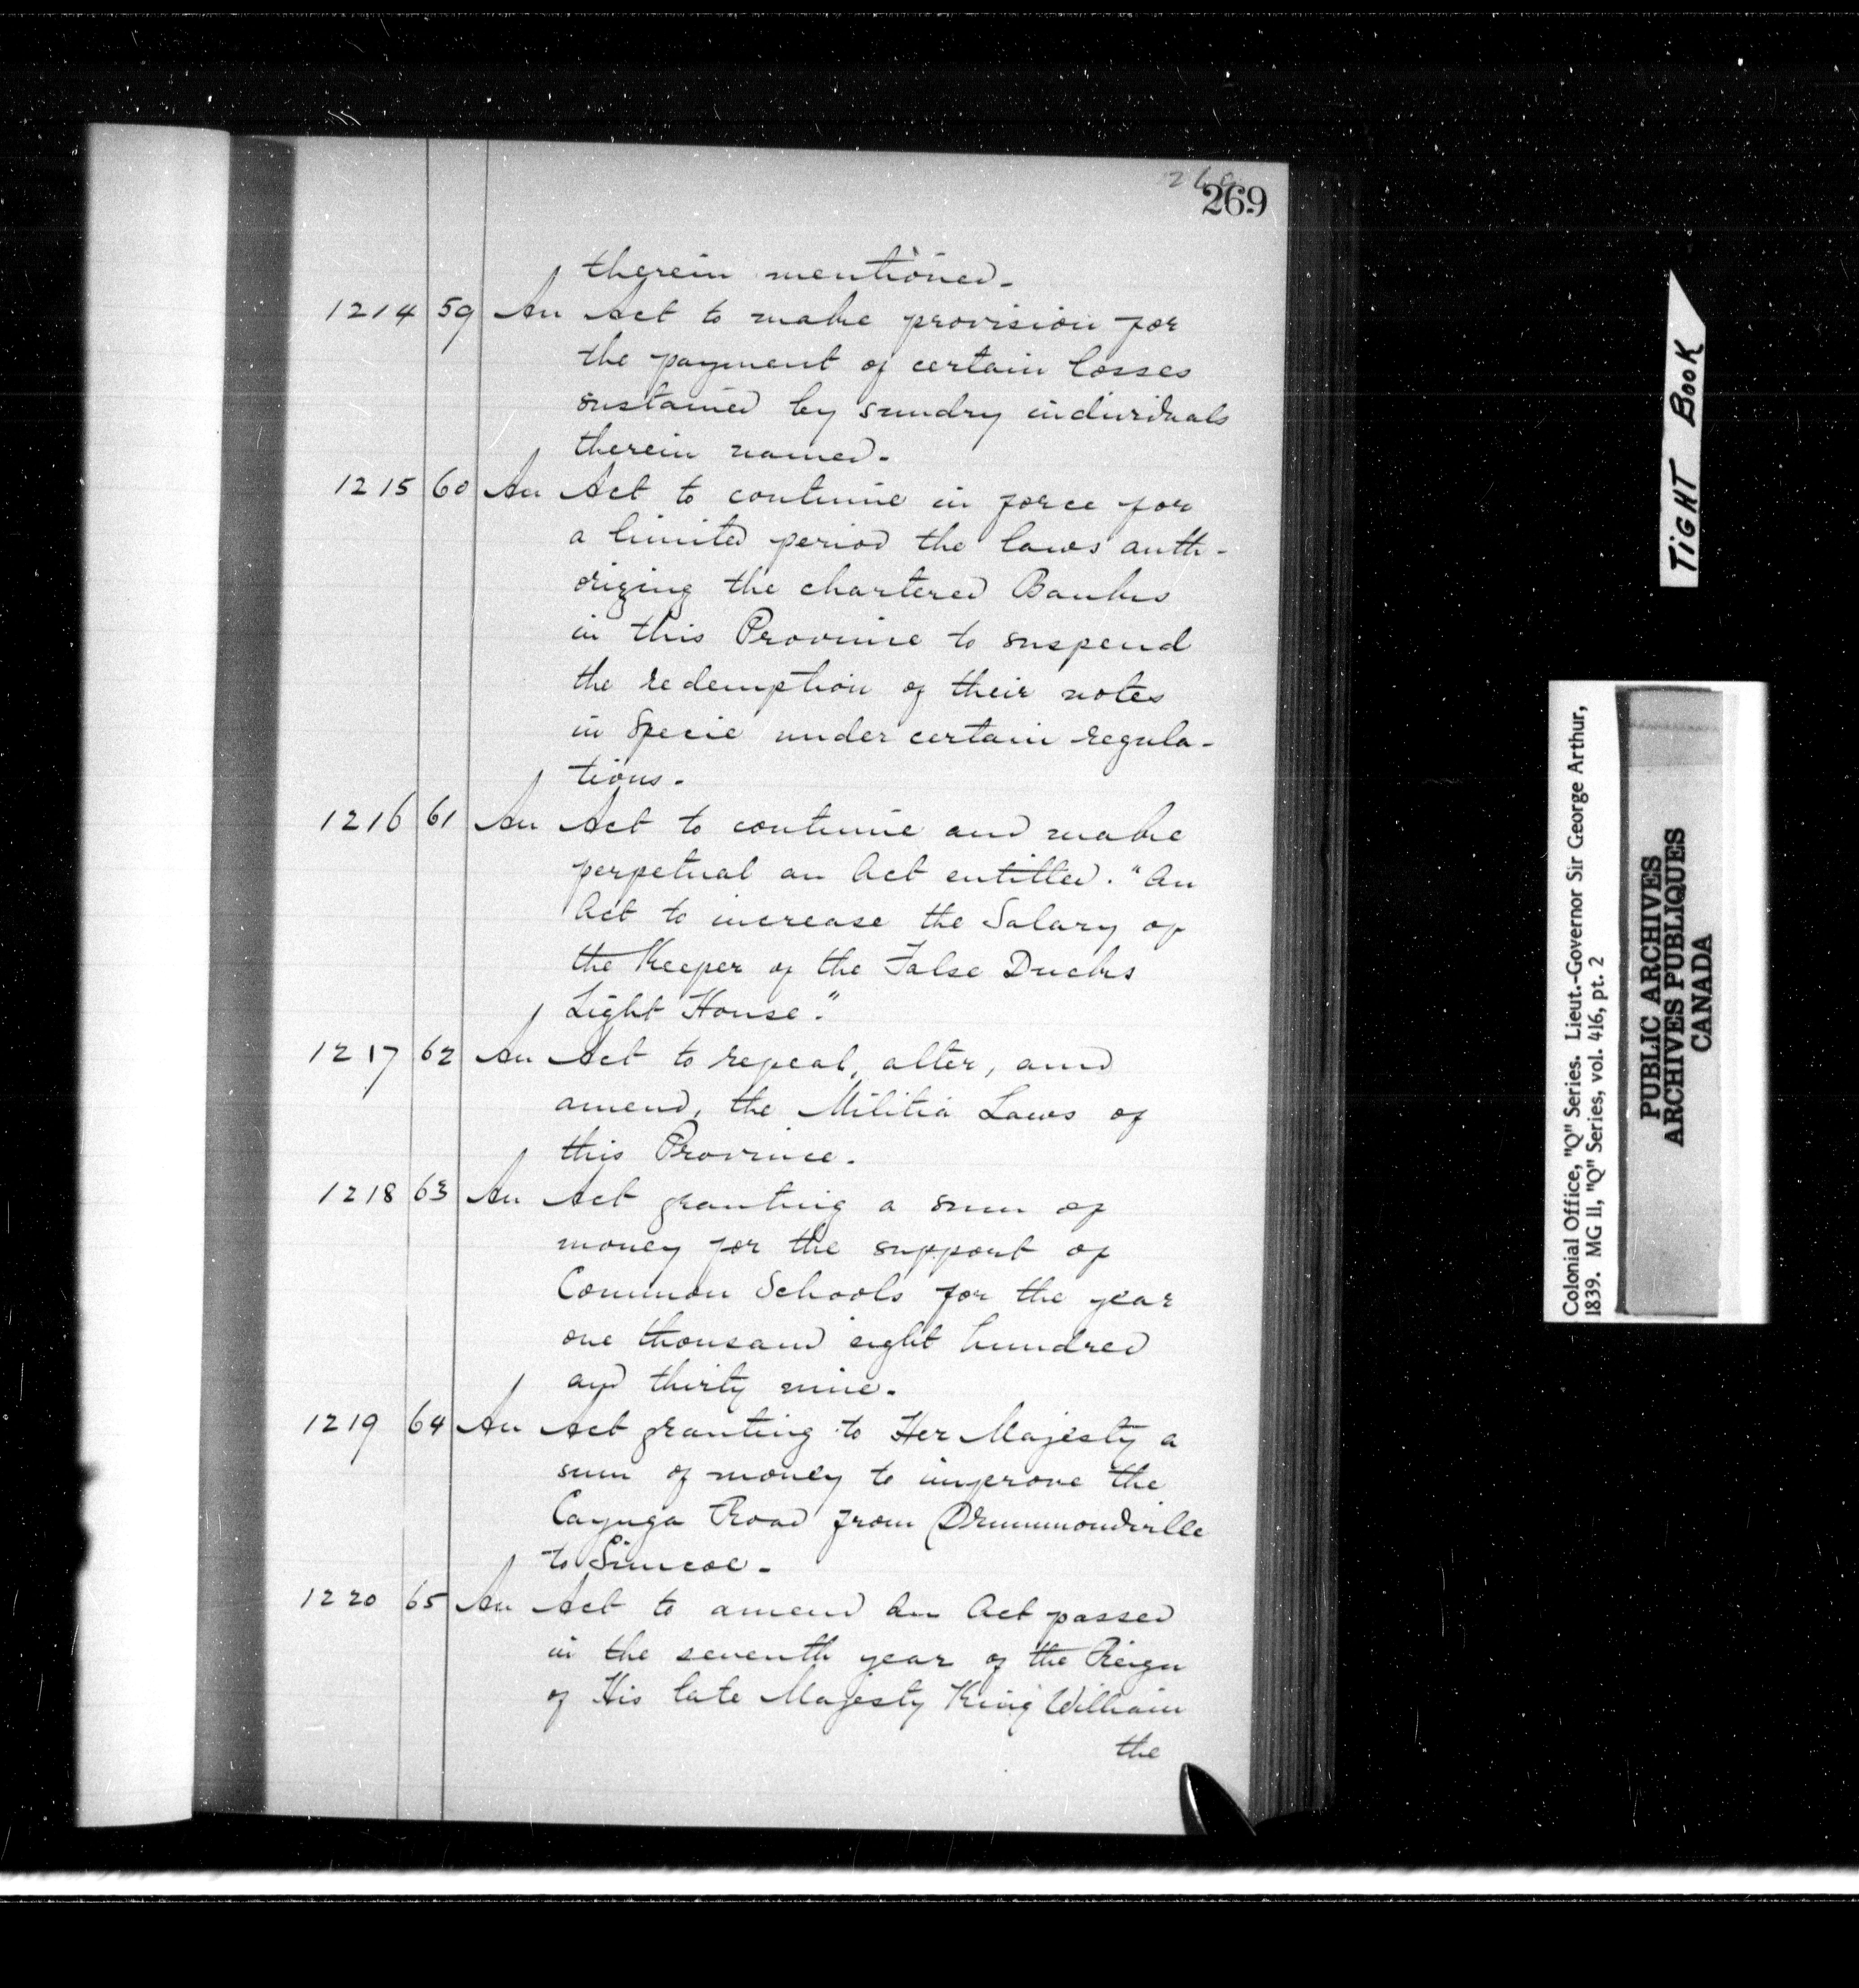 269
269
therein mentioned.
1214 59 An Act to make provision for
the payment of certain losses
sustained by sundry individuals
therein named.
1215 60 An Act to continue in force for
a limited period the laws auth-
orizing the chartered Banks
in this Province to suspend
the redemption of their notes
in Specie under certain regula-
tions.
1216 61 An Act to continue and make
perpetual an Act entitled. "An
Act to increase the Salary of
the Keeper of the False Ducks
Light House."
1217 62 An Act to repeal, alter, and
amend, the Militia Laws of
this Province.
1218 63 An Act granting a sum of
money for the support of
Common Schools for the year
one thousand eight hundred
and thirty nine.
1219 64 An Act granting to Her Majesty a
sum of money to improve the
Cayuga Road from Drummondville
to Simcoe.
1220 65 An Act to amend an Act passed
in the seventh year of the Reign
of His late Majesty King William
the
TIGHT BOOK
Colonial Office, "Q" Series. Lieut.-Governor Sir George Arthur,
1839. MG 11, "Q" Series, vol. 416, pt. 2
PUBLIC ARCHIVES
ARCHIVES PUBLIQUES
CANADA